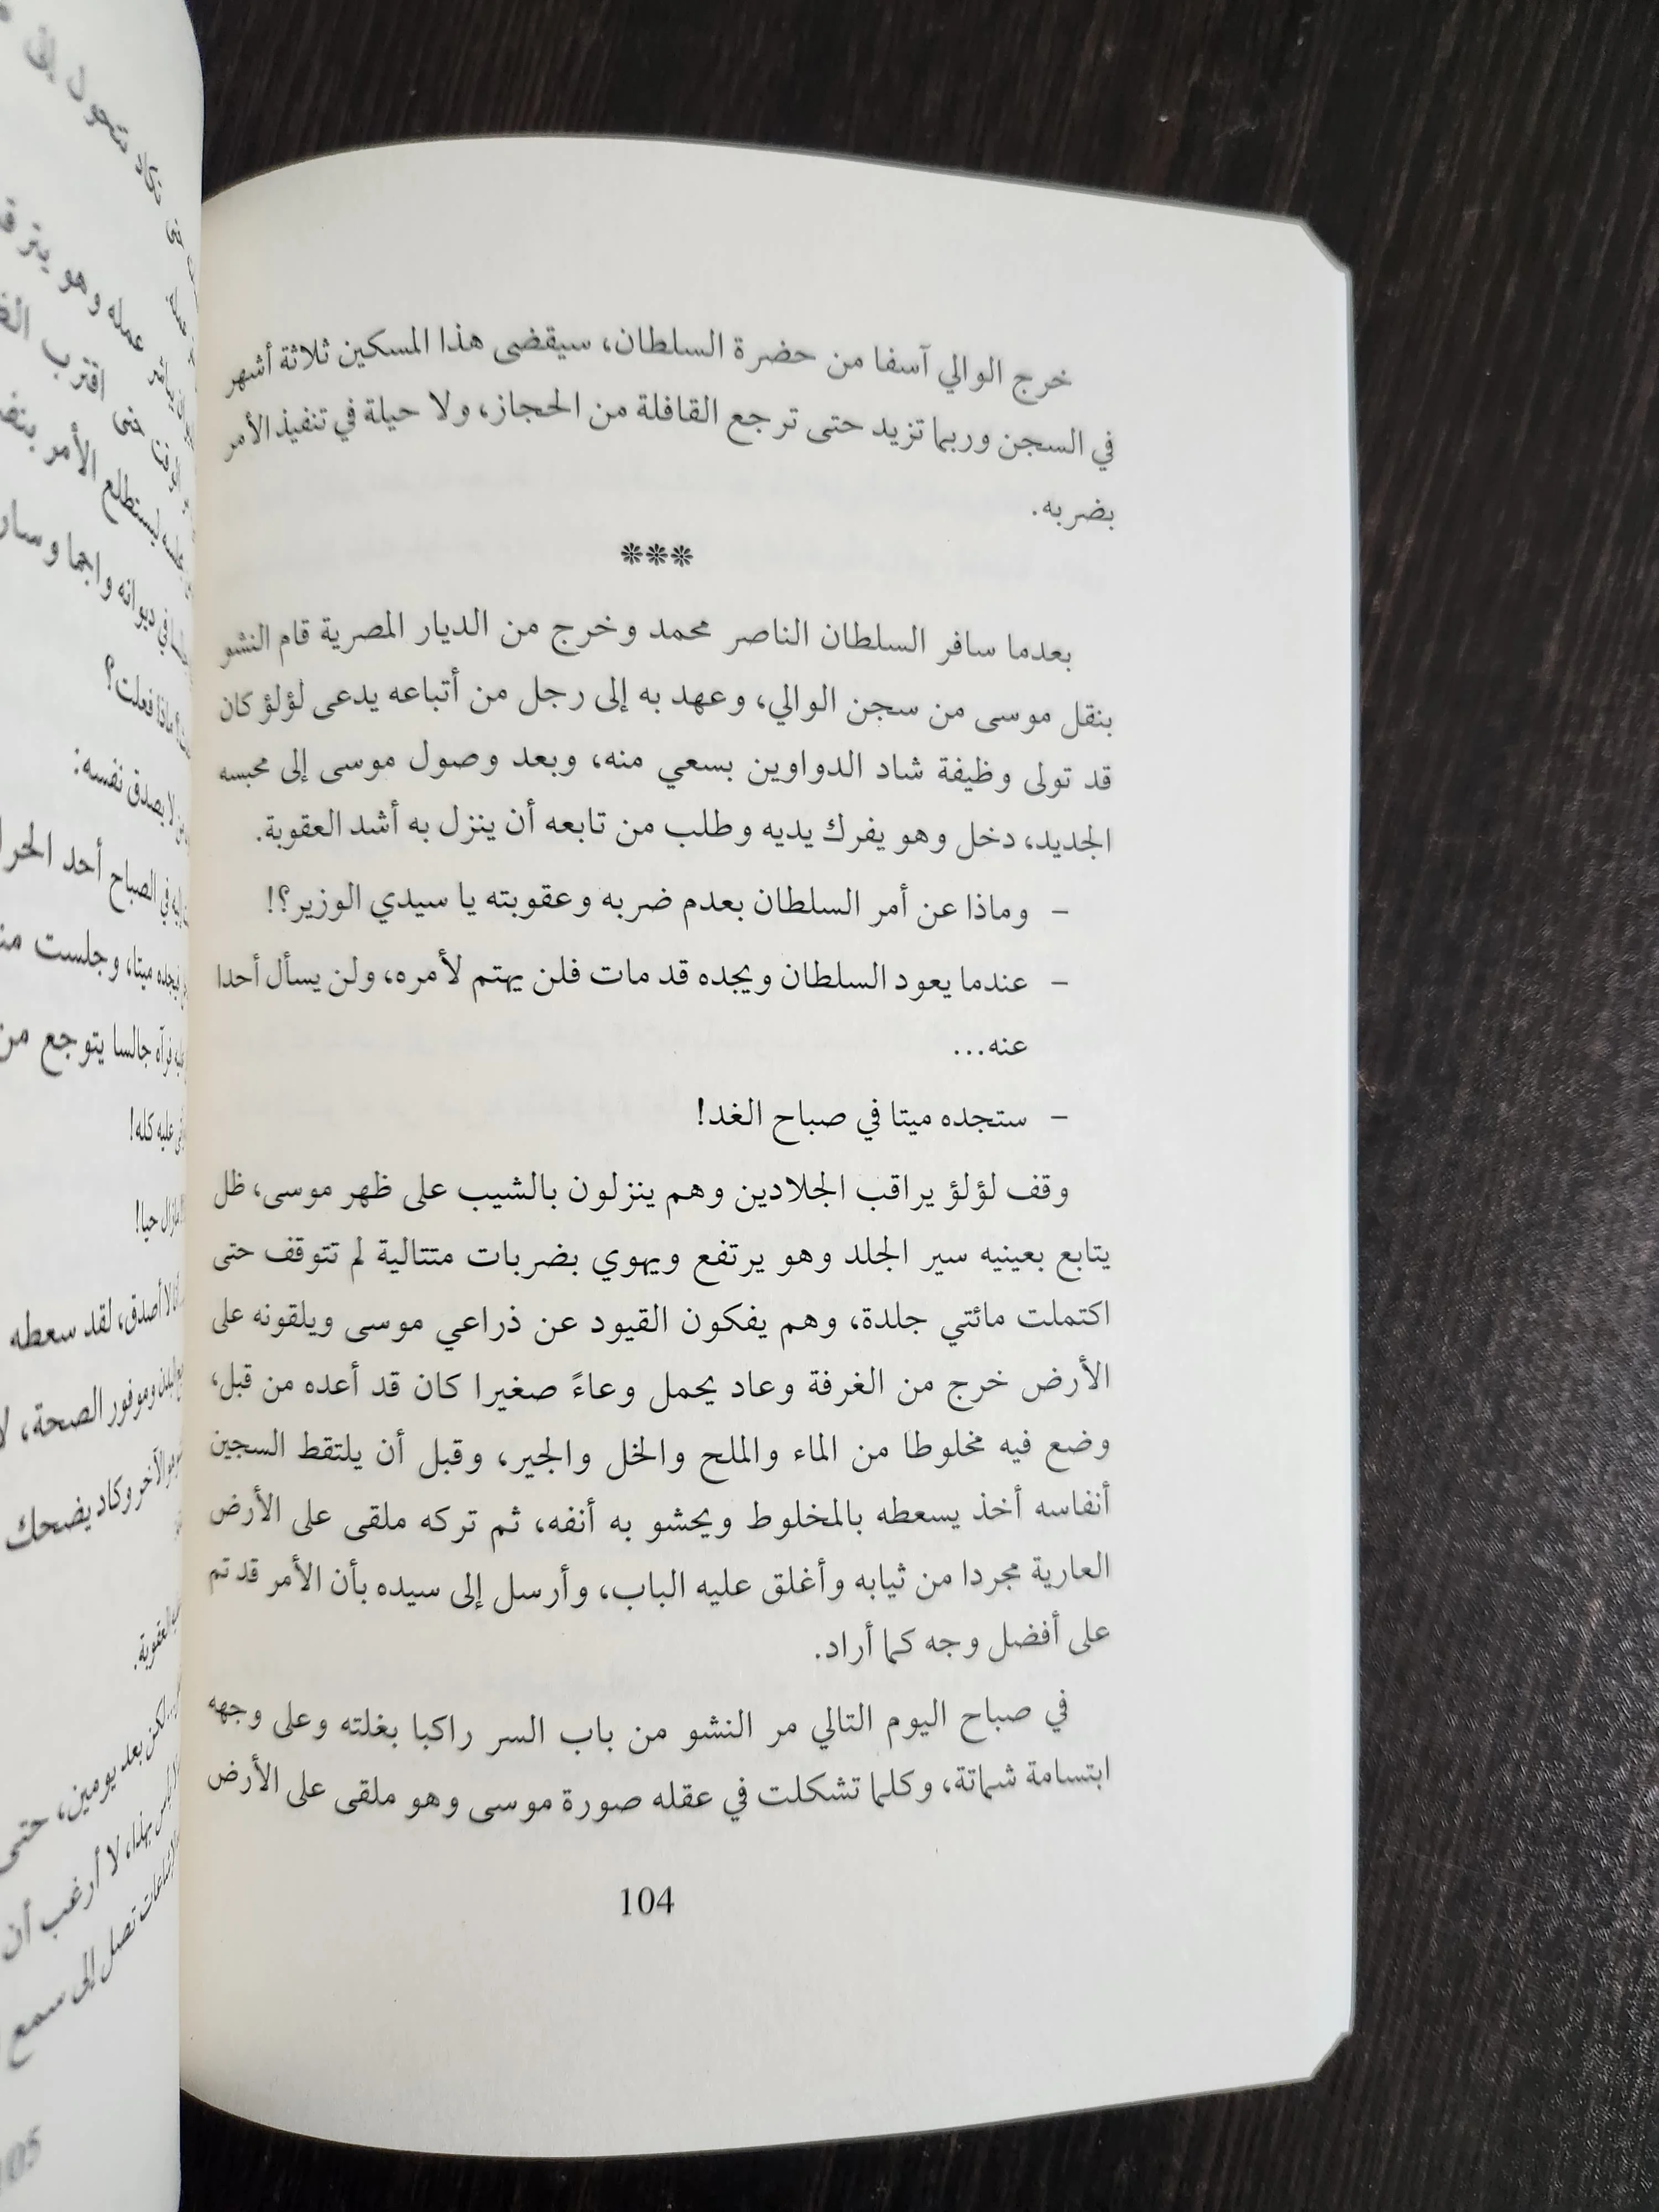 خرج الوالي آسفا من حضرة السلطان، سيقضى هذا المسكين ثلاثة أشهر
في السجن وربما تزيد حتى ترجع القافلة من الحجاز، ولا حيلة في تنفيذ الأمر
بضربه.
***
بعدما سافر السلطان الناصر محمد وخرج من الديار المصرية قام النشو
بنقل موسى من سجن الوالي، وعهد به إلى رجل من أتباعه يدعى لؤلؤ كان
قد تولى وظيفة شاد الدواوين بسعي منه، وبعد وصول موسى إلى محبسه
الجديد، دخل وهو يفرك يديه وطلب من تابعه أن ينزل به أشد العقوبة.
- وماذا عن أمر السلطان بعدم ضربه وعقوبته يا سيدي الوزير؟!
- عندما يعود السلطان ويجده قد مات فلن يهتم لأمره، ولن يسأل أحدا
عنه...
- ستجده ميتا في صباح الغد!
وقف لؤلؤ يراقب الجلادين وهم ينزلون بالشيب على ظهر موسى، ظل
يتابع بعينيه سير الجلد وهو يرتفع ويهوي بضربات متتالية لم تتوقف حتى
اكتملت مائتي جلدة، وهم يفكون القيود عن ذراعي موسى ويلقونه على
الأرض خرج من الغرفة وعاد يحمل وعاءً صغيرا كان قد أعده من قبل،
وضع فيه مخلوطا من الماء والملح والخل والجير، وقبل أن يلتقط السجين
أنفاسه أخذ يسعطه بالمخلوط ويحشو به أنفه، ثم تركه ملقى على الأرض
العارية مجردا من ثيابه وأغلق عليه الباب، وأرسل إلى سيده بأن الأمر قد تم
على أفضل وجه كما أراد.
في صباح اليوم التالي مر النشو من باب السر راكبا بغلته وعلى وجهه
ابتسامة شماتة، وكلما تشكلت في عقله صورة موسى وهو ملقى على الأرض
104
تكاد تتحول إلى
عمله وهو يترق
حتى اقترب
ليستطلع الأمر
ديوانه واجما وسار
ماذا فعلت؟
لا يصدق نفسه:
في الصباح أحد الحرا
فيجده ميتا، وجلست
فرآه جالسا يتوجع من
عليه كله!
مازال حيا!
لا أصدق، لقد سعطه
وموفور الصحة، لا
الآخر وكاد يضحك
العقوبة.
لكن بعد يومين، حتى
بهذا، لا أرغب أن
تصل إلى سمع
105